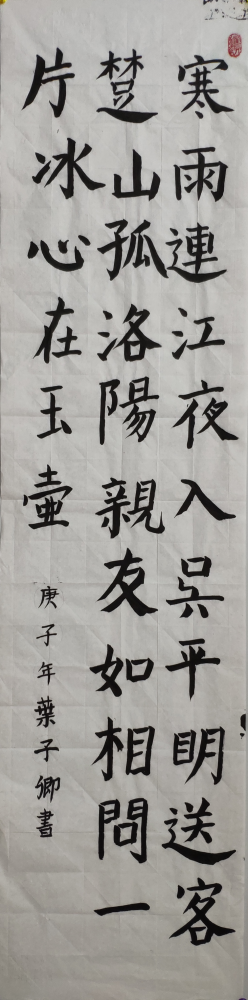 寒雨連江夜入吳平明送客
楚山孤洛陽親友如相問一
片冰心在玉壺
庚子年葉子卿書